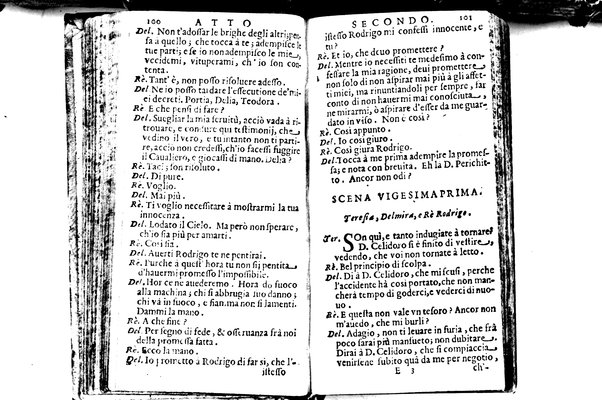 100 ATTO
Del. Non t'addossar le brighe degli altri; pen-
sa a quello; che tocca à te; adempisce le
tue parti; e se io non adempisco le mie,
vccidemi, vituperami, ch'io son con-
tenta.
Rè. Tant'è, non posso risoluere adesso.
Del. Ne io posso tardare l'essecutione de' mi-
ei decreti. Portia, Delia, Teodora.
Rè. E che pensi di fare?
Del. Suegliar la mia seruitù, acciò vada à ri-
trouare, e condure qui testimonij, che
vedino il vero, e tu intanto non ti parti-
re, acciò non credessi, ch'io facessi fuggire
il Caualiero, e giocassi di mano. Delia?
Rè. Taci; son risoluto.
Del. Di pure.
Rè. Voglio.
Del. Mai più.
Rè. Ti voglio necessitare à mostrarmi la tua
innocenza.
Del. Lodato il Cielo. Ma però non sperare,
ch'io sia più per amarti.
Rè. Così sia.
Del. Auerti Rodrigo te ne pentirai.
Rè. Purche à questi hora tu non sij pentita
d'hauermi promesso l'impossibile.
Del. Hor ce ne auederemo. Hora do fuoco
alla machina; chi s'abbrugia suo danno;
chi và in fuoco, e fian.ma non si lamenti.
Dammi la mano.
Rè. A che fine?
Del. Per segno di fede, & osseruanza frà noi
della promessa fatta.
Rè. Ecco la mano.
Del. Io prometto à Rodrigo di far sì, che l'-
istesso
SECONDO. 101
istesso Rodrigo mi confessi innocente, e
tu?
Rè. Et io, che deuo promettere?
Del. Mentre io necessiti te medesimo à con-
fessare la mia ragione, deui promettere
non solo di non aspirar mai più à gli affet-
ti miei, ma rinuntiandoli per sempre, far
conto di non hauermi mai conosciuta,
ne mirarmi, ò aspirare d'esser da me guar-
dato in viso. Non è così?
Rè. Così appunto.
Del. Io così giuro.
Rè. Così giura Rodrigo.
Del. Tocca à me prima adempire la promes-
sa; e nota con breuita. Eh là D. Perichit-
to. Ancor non odi?
SCENA VIGESIMAPRIMA.
Teresia, Delmira, e Rè Rodrigo.
Ter. SOn quì, e tanto indugiare à tornare
D. Celidoro si è finito di vestire,
vedendo, che voi non tornate à letto.
Rè. Bel principio di scolpa.
Del. Di à D. Celidoro, che mi scusi, perche
l'accidente hà così portato, che non man-
cherà tempo di goderci, e vederci di nuo-
uo.
Rè. E questa non vale vn tesoro? Ancor non
m'auedo, che mi burli?
Del. Adagio, non ti leuare in furia, che frà
poco sarai più mansueto; non dubitare.
Dirai à D. Celidoro, che si compiaccia
venirsene subito quà da me per negotio,
E 3 ch'-